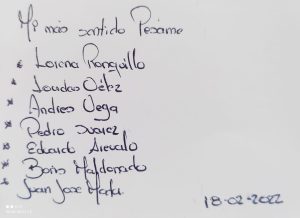 Mi más sentido Pesáme
* Lorena Ronquillo
* Lourdes Vétiz
* Andres Vega
* Pedro Suarez
* Eduardo Arevalo
* Boris Maldonado
* Juan Jose Mata
18-02-2022